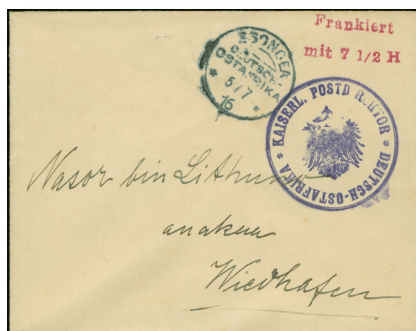 Frankiert
mit 7 1/2 H
SSONGEA
DEUTSCH-
OSTAFRIKA
5/7
16
* KAISERL. POSTDIREKTOR * DEUTSCH-OSTAFRIKA
Nasor bin
anakaa
Wiedhafen